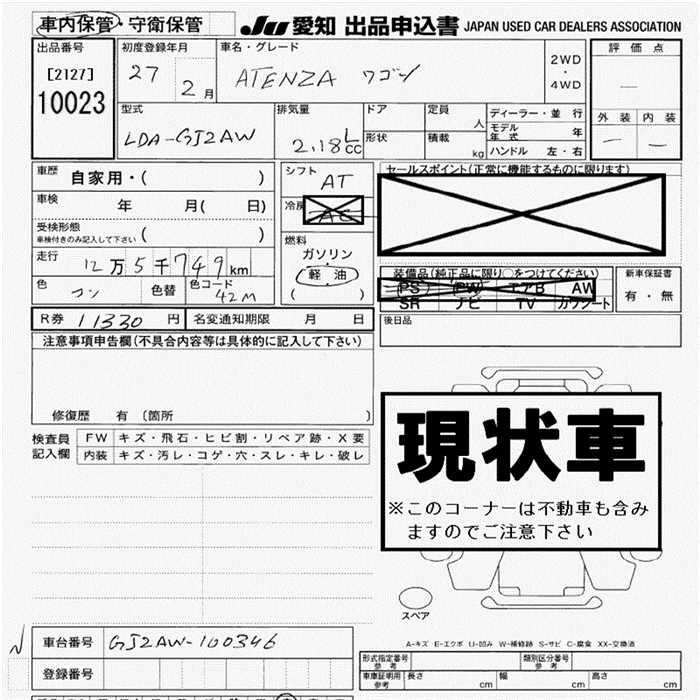 車内保管・守衛保管 JU 愛知 出品申込書 JAPAN USED CAR DEALERS ASSOCIATION
出品番号 初度登録年月 車名・グレード 2WD ・ 4WD 評価点
[2127] 10023 27 2月 ATENZA ワゴン
型式 排気量 ドア 定員 人 ディーラー・並行 外装 内装
LDA-GJ2AW 2.18 L cc 形状 積載 kg モデル年式 年
ハンドル 左・右
車歴 自家用・( ) シフト AT セールスポイント(正常に機能するものに限ります)
車検 年 月( 日) 冷房 AC
受検形態 ( )
車検付きのみ記入して下さい
燃料
走行 12万5千749km ガソリン・軽油 ( ) 装備品(純正品に限り○をつけてください) 新車保証書
色 コン 色替 色コード 42M PS PW エアB AW 有・無
SR ナビ TV カワシート
R券 11330 円 名変通知期限 月 日 後日品
注意事項申告欄(不具合内容等は具体的に記入して下さい)
修復歴 有 〔箇所 〕
検査員記入欄 FW キズ・飛石・ヒビ割・リペア跡・X要
内装 キズ・汚レ・コゲ・穴・スレ・キレ・破レ
現状車
※このコーナーは不動車も含み
ますのでご注意下さい
スペア
A-キズ E-エクボ U-凹み W-補修跡 S-サビ C-腐食 XX-交換済
車台番号 GJ2AW-100346
登録番号
形式指定番号 参考 類別区分番号 参考
車庫証明用 参考 長さ cm 幅 cm 高さ cm